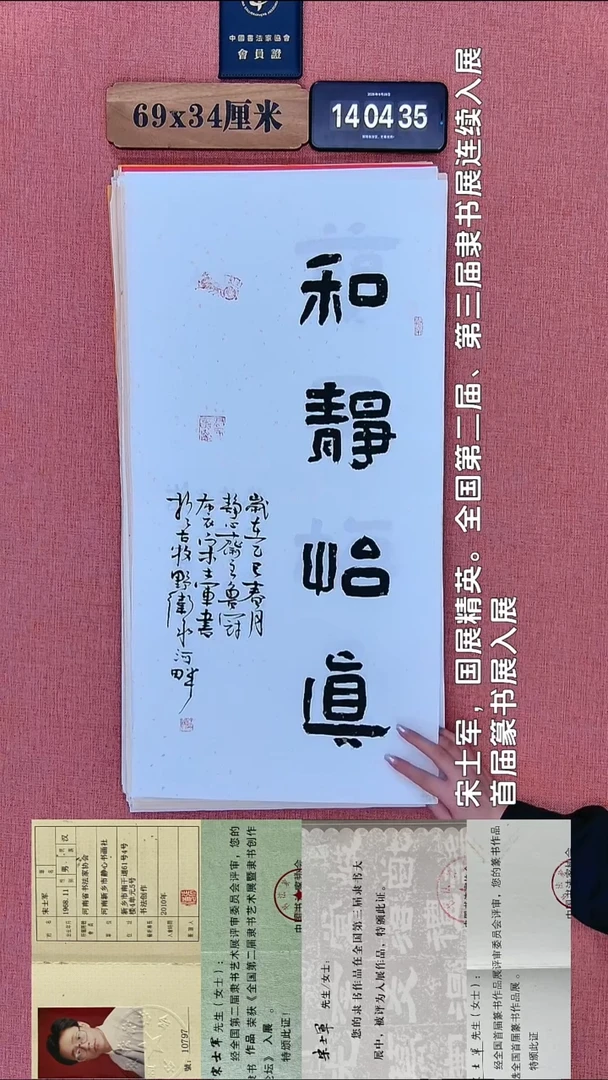 中國書法家協會
會員證
69x34厘米
14 04 35
和靜怡真
歲在乙巳春月
靜心齋主魯冠
宋士軍書
於古牧野衛水河畔
宋士军，国展精英。全国第二届、第三届隶书展连续入展
首届篆书展入展
宋士军
男
汉
1968.11
河南省书法家协会
河南新乡市静心书画社
新乡市南干道61号4号
楼4单元5号
书法创作
2010年
號: 10797
宋士军 先生（女士）：
经全国第二届隶书艺术展评审委员会评审，您的
隶书 作品 荣获《全国第二届隶书艺术展暨隶书创作
论坛》 入展 。
特颁此证！
宋士军 先生/女士：
您的隶书作品在全国第三届隶书大
展中，被评为入展作品，特颁此证。
士军 先生（女士）：
经全国首届篆书作品展评审委员会评审，您的篆书作品
全国首届篆书作品展。
特颁此证